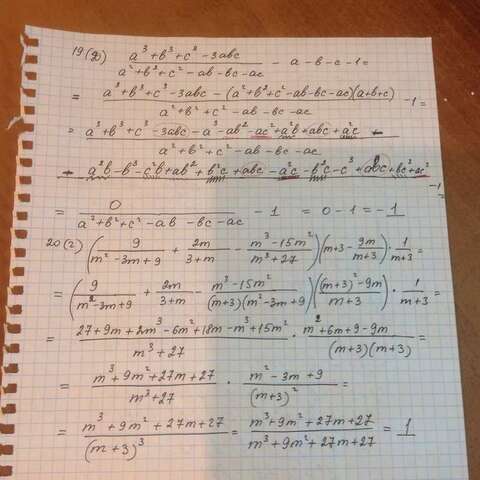 19(2) (a³+b³+c³-3abc)/(a²+b²+c²-ab-bc-ac) - a-b-c-1=
= (a³+b³+c³-3abc-(a²+b²+c²-ab-bc-ac)(a+b+c))/(a²+b²+c²-ab-bc-ac) -1=
= a³+b³+c³-3abc-a³-ab²-ac²+a²b+abc+a²c -
a²+b²+c²-ab-bc-ac
- a²b-b³-c²b+ab²+b²c+abc-a²c-b²c-c³+abc+bc²+ac² -1=
= 0/(a²+b²+c²-ab-bc-ac) - 1 = 0-1=-1
20(2) (9/(m²-3m+9) + 2m/(3+m) - (m³-15m²)/(m³+27))(m+3-9m/(m+3))·1/(m+3)=
= (9/(m²-3m+9) + 2m/(3+m) - (m³-15m²)/((m+3)(m²-3m+9)))(((m+3)²-9m)/(m+3))·1/(m+3)=
= (27+9m+2m³-6m²+18m-m³+15m²)/(m³+27) · (m²+6m+9-9m)/((m+3)(m+3))=
= (m³+9m²+27m+27)/(m³+27) · (m²-3m+9)/(m+3)²=
= (m³+9m²+27m+27)/(m+3)³ = (m³+9m²+27m+27)/(m³+9m²+27m+27) = 1